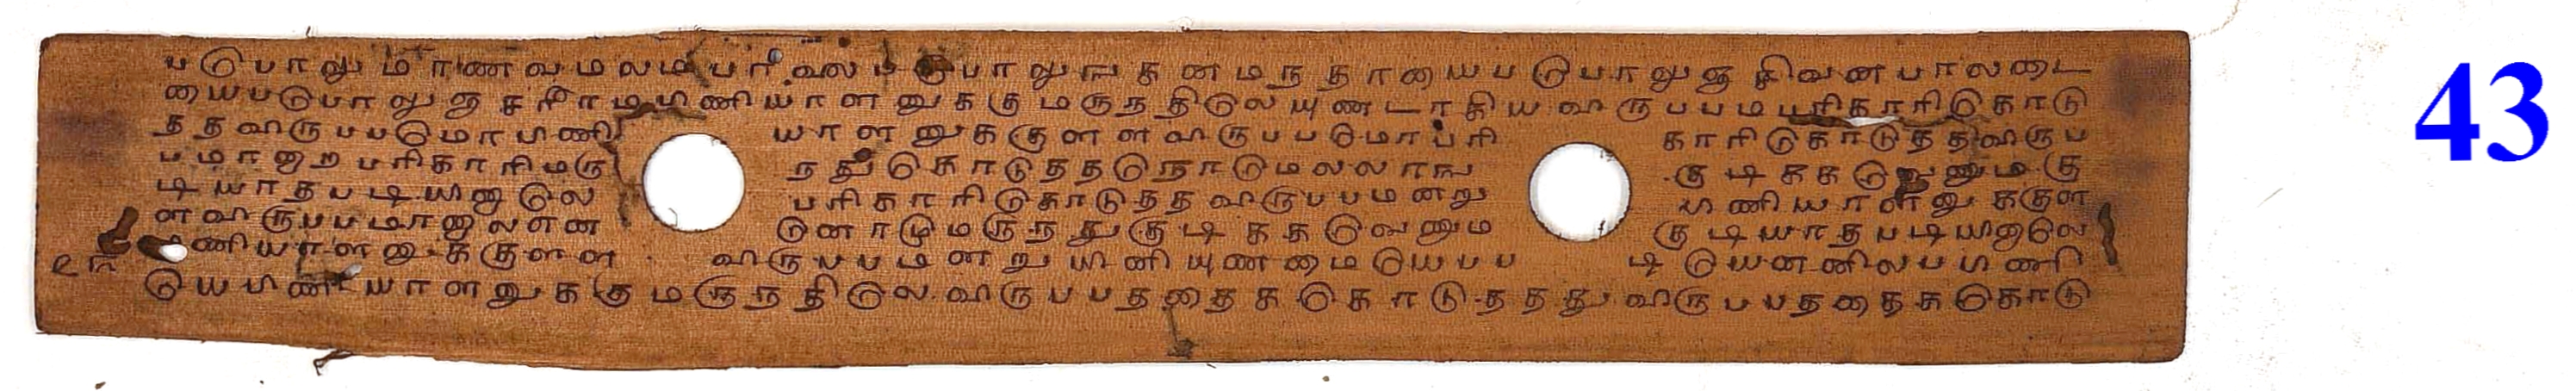 படுபாலுமாணவமலமபரிவல படுபாலுங கனமநதாயைபடுபாலுஞ சிவனபாலடை
யைபடுபாலுஞ சரீரமபிணியாளனுககு மருநதிலெயுணடாகிய விருபபமபரிகாரிகொடு
தத விருபபமொபிணி யாளனுககுளள விருபபமொபரி காரிகொடுததவிருப
பமானறெ பரிகாரிமரு நதுகொடுததநொடுமலலாங குடிககவெணும கு
டியாதபடியினாலெ பரிகாரிகொடுதத விருபபமனறு பிணியாளனுககுள
ள விருபபமானாலஎன னொடுமருநதுகுடிககவெணும குடியாதபடியினாலெ
பிணியாளனுககுளள விருபபமனறு யினியுணமையெபப டியெனனிலபபிணி
யெபிணியாளனுககு மருநதிலெ விருபபததைக கொடுததது விருபபததைக கொடு
43